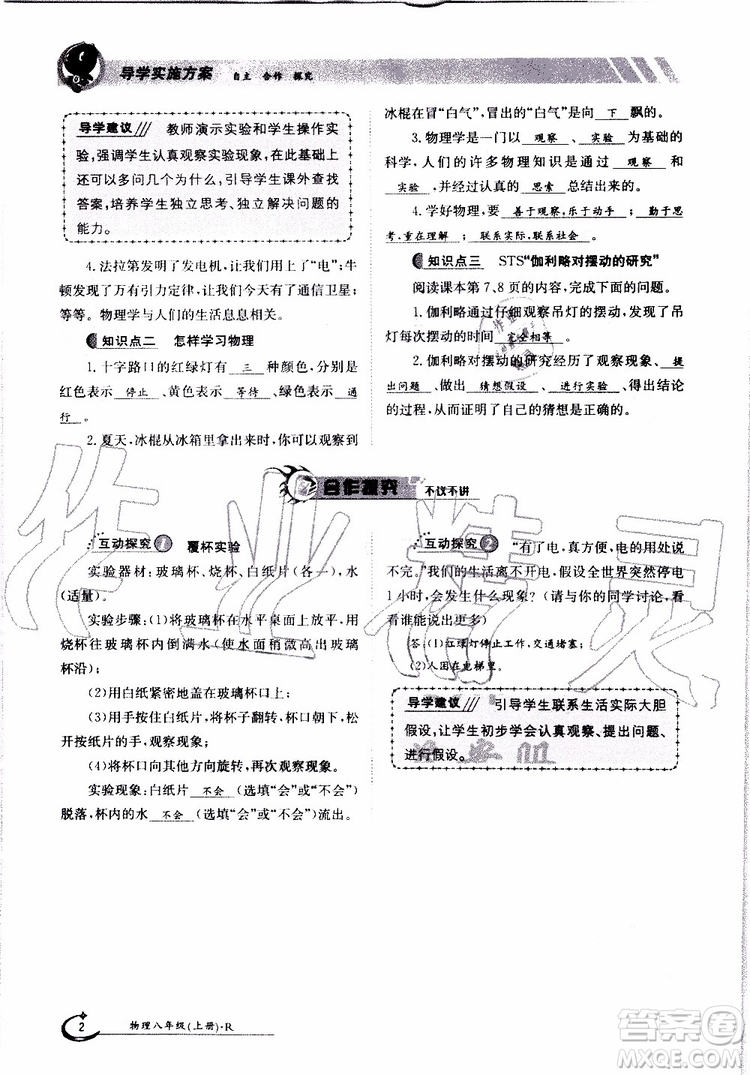 导学实施方案 自主 合作 探究
导学建议 教师演示实验和学生操作实
验,强调学生认真观察实验现象,在此基础上
还可以多问几个为什么,引导学生课外查找
答案,培养学生独立思考、独立解决问题的
能力。
4.法拉第发明了发电机,让我们用上了“电”;牛
顿发现了万有引力定律,让我们今天有了通信卫星;
等等。物理学与人们的生活息息相关。
知识点二 怎样学习物理
1.十字路口的红绿灯有 三 种颜色,分别是
红色表示 停止 、黄色表示 等待 、绿色表示 通
行 。
2.夏天,冰棍从冰箱里拿出来时,你可以观察到
冰棍在冒“白气”,冒出的“白气”是向 下 飘的。
3.物理学是一门以 观察 、 实验 为基础的
科学,人们的许多物理知识是通过 观察 和
实验 ,并经过认真的 思索 总结出来的。
4.学好物理,要 善于观察,乐于动手 ; 勤于思
考,重在理解 ; 联系实际,联系社会 。
知识点三 STS“伽利略对摆动的研究”
阅读课本第7、8页的内容,完成下面的问题。
1.伽利略通过仔细观察吊灯的摆动,发现了吊
灯每次摆动的时间 完全相等 。
2.伽利略对摆动的研究经历了观察现象、 提
出问题 、做出 猜想假设 、 进行实验 、得出结论
的过程,从而证明了自己的猜想是正确的。
合作探究 不议不讲
互动探究1 覆杯实验
实验器材:玻璃杯、烧杯、白纸片(各一),水
(适量)。
实验步骤:(1)将玻璃杯在水平桌面上放平,用
烧杯往玻璃杯内倒满水(使水面稍微高出玻璃
杯沿);
(2)用白纸紧密地盖在玻璃杯口上;
(3)用手按住纸片,将杯子翻转,杯口朝下,松开
按纸片的手,观察现象;
(4)将杯口向其他方向旋转,再次观察现象。
实验现象:白纸片 不会 (选填“会”或“不会”)
脱落,杯内的水 不会 (选填“会”或“不会”)流出。
互动探究2 “有了电,真方便,电的用处说
不完。”我们的生活离不开电,假设全世界突然停电
1小时,会发生什么现象?(请与你的同学讨论,看
看谁能说出更多)
答:(1)红绿灯停止工作,交通堵塞;
(2)人困在电梯里。
导学建议 引导学生联系生活实际大胆
假设,让学生初步学会认真观察、提出问题、
进行假设。
2 物理八年级(上册)·R
作业精灵
答案圈
MXQE.COM